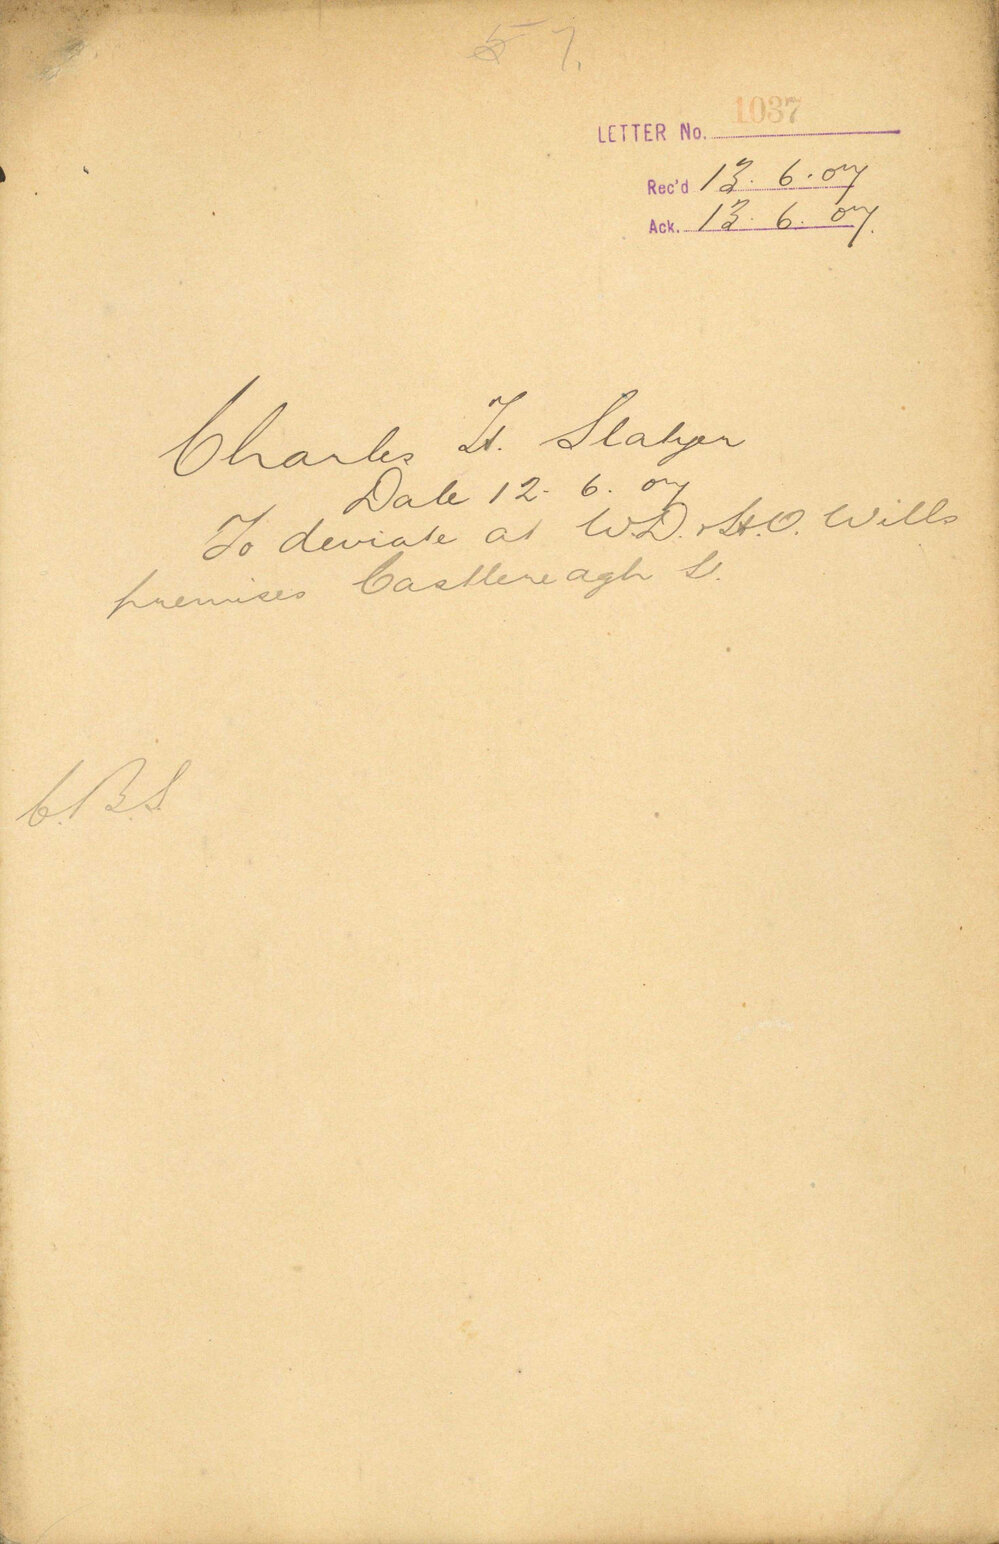 57.
LETTER No. 1037
Rec'd 13. 6. 07
Ack. 13. 6. 07.
Charles H. Slatyer
Date 12. 6. 07
To deviate at W.D. & H.O. Wills
premises Castlereagh St.
C.B.S.